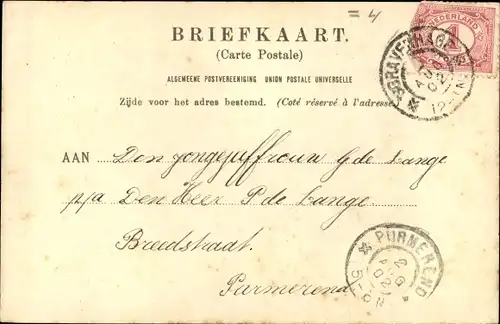 = 4
BRIEFKAART.
(Carte Postale)
ALGEMEENE POSTVEREENIGING UNION POSTALE UNIVERSELLE
Zijde voor het adres bestemd. (Coté réservé à l'adresse)
NEDERLAND
1
'S GRAVENHAGE
AAN Den Jongejuffrouw G de Lange
p/a Den Heer P de Lange
Breedstraat.
Purmerend
PURMEREND